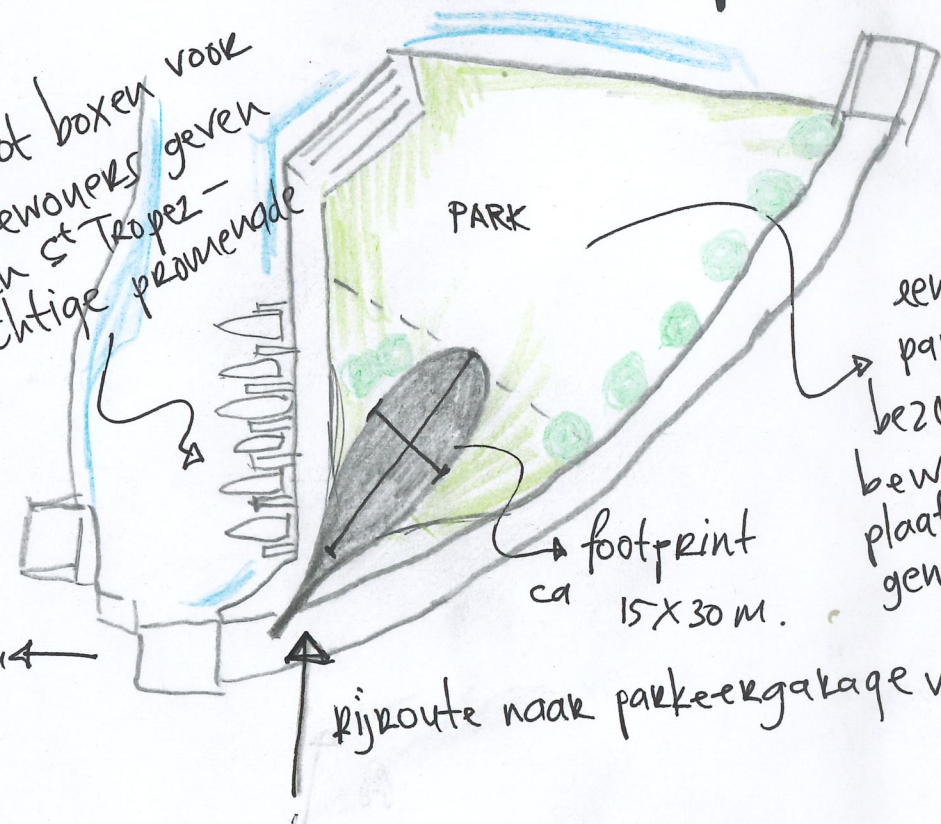 ot boxen voor
ewoners geven
n St Tropez-
chtige promenade
PARK
een
pa
bez
bew
plaat
gen
footprint
ca 15 x 30 m.
rijroute naar parkeergarage v